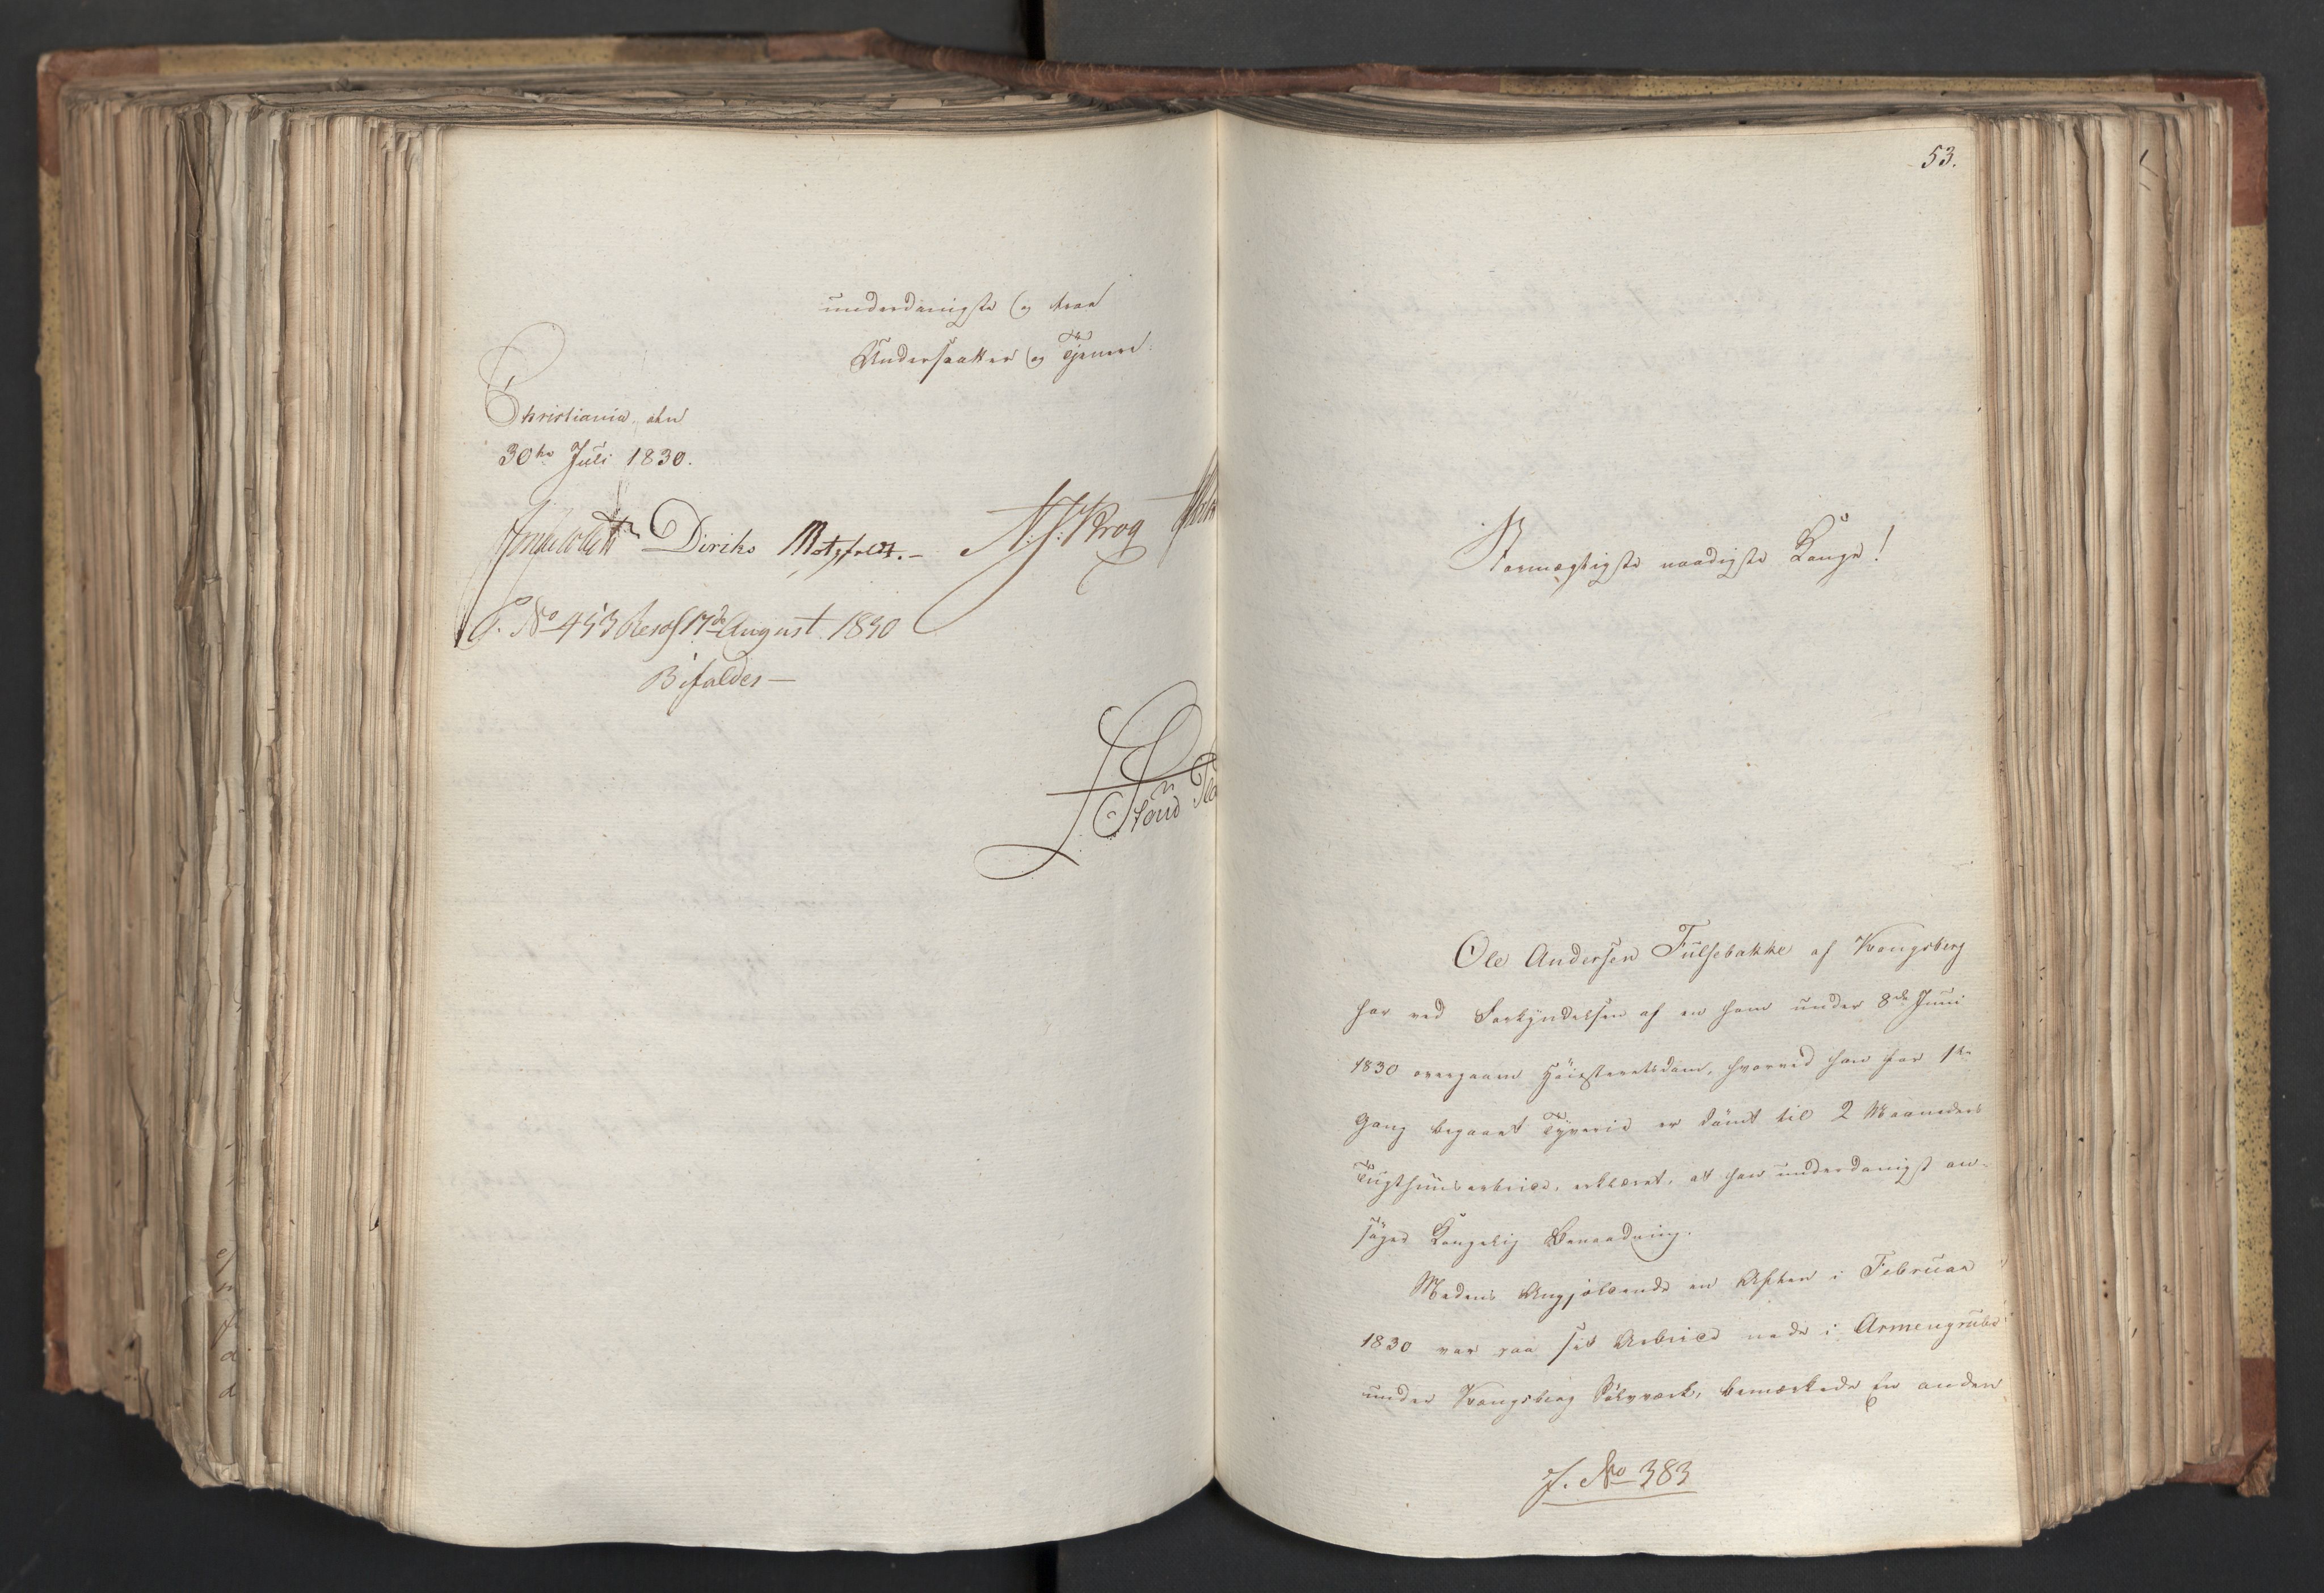 underdanigste og troe
Undersaatter og Tjenere.
Christiania, den
30te Juli 1830.
Diriks Motzfeldt.- N. J. Krog
C. No 453 Resol 17de August 1830
Bifaldes —
53.
Stormægtigste naadigste Konge!
Ole Andersen Fulsebakke af Kongsberg
har ved Forkyndelsen af en ham under 8de Juni
1830 overgaaen Høiesteretsdom, hvorved han for 1ste
Gang begaaet Tyverie er dömt til 2 Maaneders
Tugthuusarbeide, erklæret, at han underdanigst an-
søger Kongelig Benaadning.
Medens Angjeldende en Aften i Februar
1830 var paa sit Arbeide nede i Armengrube
under Kongsberg Sölvværk, bemærkede En anden
J. No 383